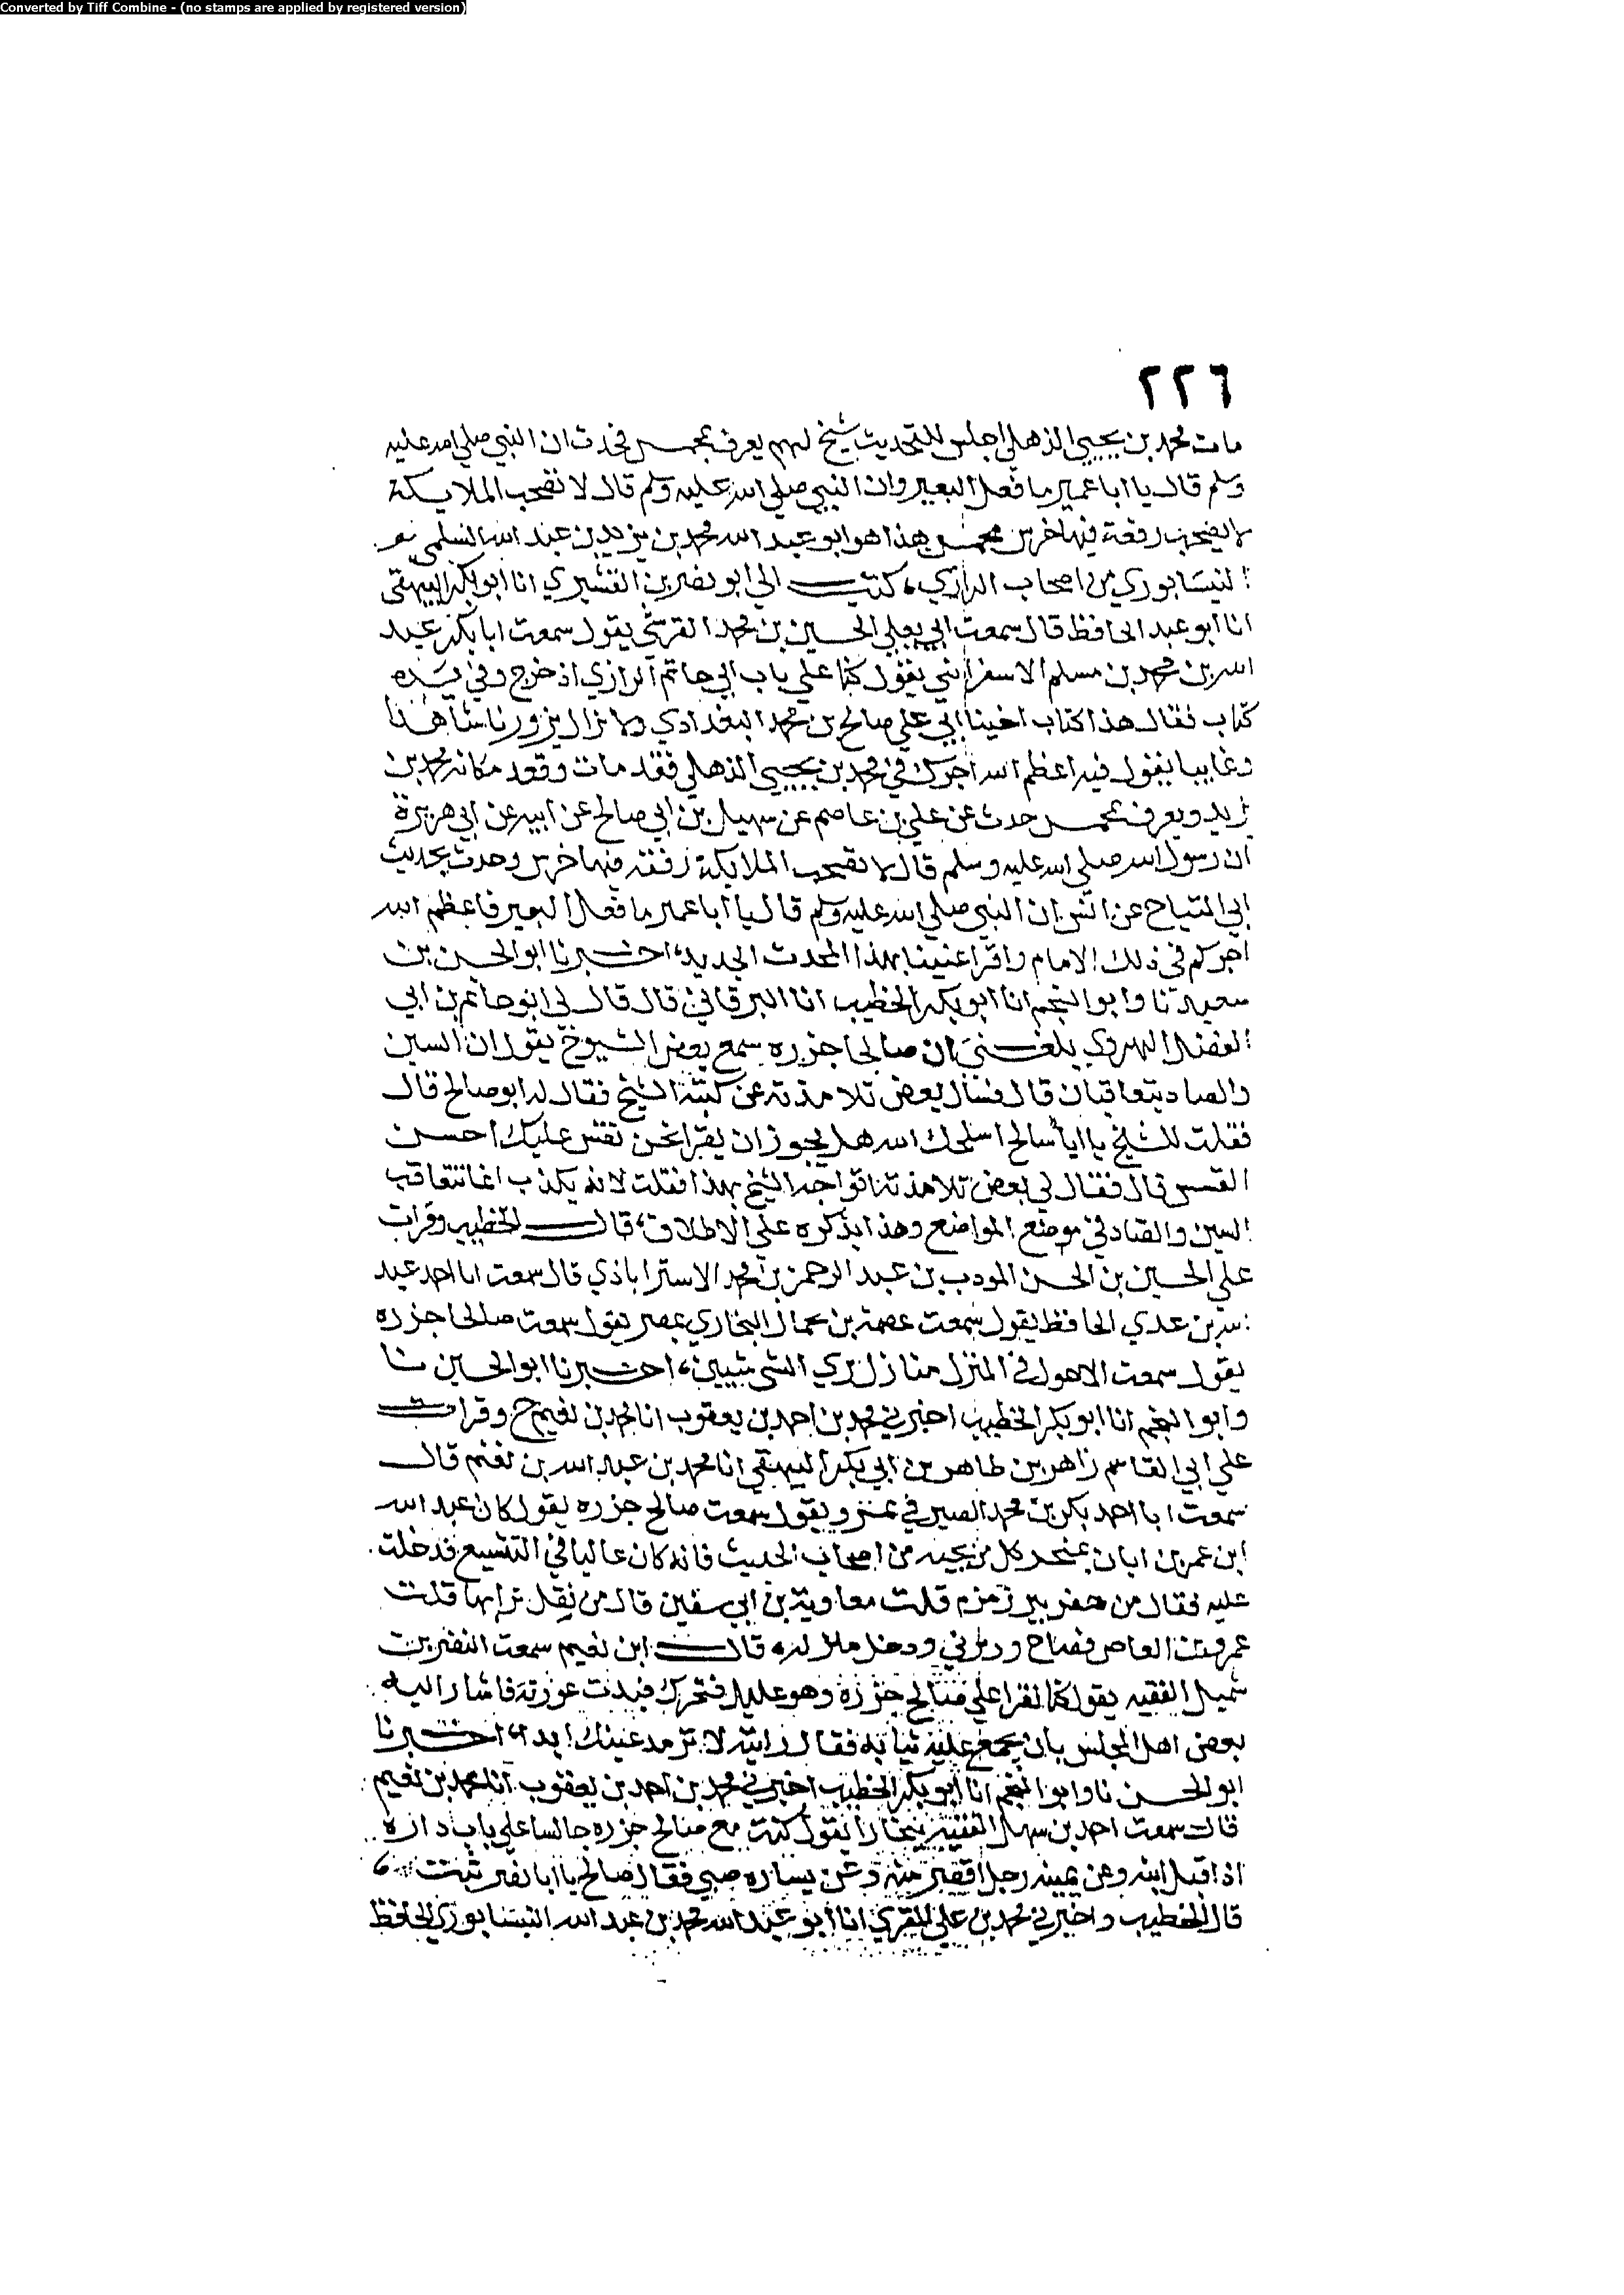 Converted by Tiff Combine - (no stamps are applied by registered version)
٢٢٦
مات محمد بن يحيى الذهلي اجلس للتحديث شيخ لهم يعرف بمحمس فحدث ان النبي صلى الله عليه
وسلم قال يا ابا عمير ما فعل البعير وان النبي صلى الله عليه وسلم قال لا تصحب الملايكة
رفقة فيها خرس محمس هذا هو ابو عبد الله محمد بن يزيد بن عبد الله السلمي
النيسابوري من اصحاب الرازي، كتب الي ابو نصر بن القشيري انا ابو بكر البيهقي
انا ابو عبد الحافظ قال سمعت ابي يعلي الحسين بن محمد القرشي يقول سمعت ابا بكر عبد
الله بن محمد بن مسلم الاسفرايني يقول كنا على باب ابي حاتم الرازي اذ خرج وفي يده
كتاب فقال هذا كتاب اخينا ابي علي صالح بن محمد البغدادي ولا نزال يزورنا شاهدا
وغايبا يقول فيه اعظم الله اجرك في محمد بن يحيى الذهلي فقد مات وقعد مكانه محمد بن
يزيد ويعرف بمحمس حدث عن علي بن عاصم عن سهيل بن ابي صالح عن ابيه عن ابي هريرة
ان رسول الله صلى الله عليه وسلم قال لا تصحب الملايكة رفقة فيها خرس وحدث بحديث
ابي التياح عن انس ان النبي صلى الله عليه وسلم قال يا أبا عمير ما فعل البعير فاعظم الله
اجركم في ذلك الامام واقر اعيننا بهذا المحدث الجديد، اخبرنا ابو الحسن بن
سعيد نا وابو النجم انا ابو بكر الخطيب انا البرقاني قال قال لي ابو حاتم بن ابي
الفضل الهروي بلغني ان صالحا جزره سمع بعض الشيوخ يقول ان السين
والصاد يتعاقبان قال فسال بعض تلامذته عن كنية الشيخ فقال له ابو صالح قال
فقلت للشيخ يا ابا سالح اسلحك الله هل يجوز ان يقرا نحن نقس عليك احسن
القسس قال فقال لي بعض تلامذته تواجه الشيخ بهذا فقلت لانه يكذب انما تتعاقب
السين والصاد في موضع المواضع وهذا يذكره على الاطلاق، قال الخطيب وقرات
على الحسين بن الحسن المودب بن عبد الرحمن بن محمد الاستراباذي قال سمعت ابا احمد عبد
الله بن عدي الحافظ يقول سمعت عصمة بن بجماك البخاري بمصر يقول سمعت صالحا جزره
يقول سمعت الاحول في المنزل منازل يري الشي شيين، اخبرنا ابو الحسين نا
وابو النجم انا ابو بكر الخطيب اخبرني محمد بن احمد بن يعقوب انا محمد بن نعيم ح وقرات
على ابي القاسم زاهر بن طاهر بن ابي بكر البيهقي انا محمد بن عبد الله بن نعيم قال
سمعت ابا احمد بكر بن محمد الصيرفي بمرو يقول سمعت صالح جزره يقول كان عبد الله
ابن عمر بن ابان يمتحن كل من يجيه من اصحاب الحديث فانه كان غاليا في التشيع فدخلت
عليه فقال من حفر بير زمزم قلت معاوية بن ابي سفين قال من نقل ترابها قلت
عمرو بن العاص فصاح وزبرني ودخل منزله قال ابن نعيم سمعت النضر بن
شميل الفقيه يقول كنا نقرا على صالح جزره وهو عليل فتحرك فبدت عورته فاشار اليه
بعض اهل المجلس بان يجمع عليه ثيابه فقال رايته لا ترمد عينك ابدا، اخبرنا
ابو الحسن نا وابو النجم انا ابو بكر الخطيب اخبرني محمد بن احمد بن يعقوب انا محمد بن نعيم
قال سمعت احمد بن سهل الفقيه ببخارا يقول كنت مع صالح جزره جالسا على باب داره
اذ اقبل ابنه وعن يمينه رجل اقصر منه وعن يساره صبي فقال صالح يا ابا نصر تبت
قال الخطيب واخبرني محمد بن علي المقري انا ابو عبد الله محمد بن عبد الله النيسابوري الحافظ